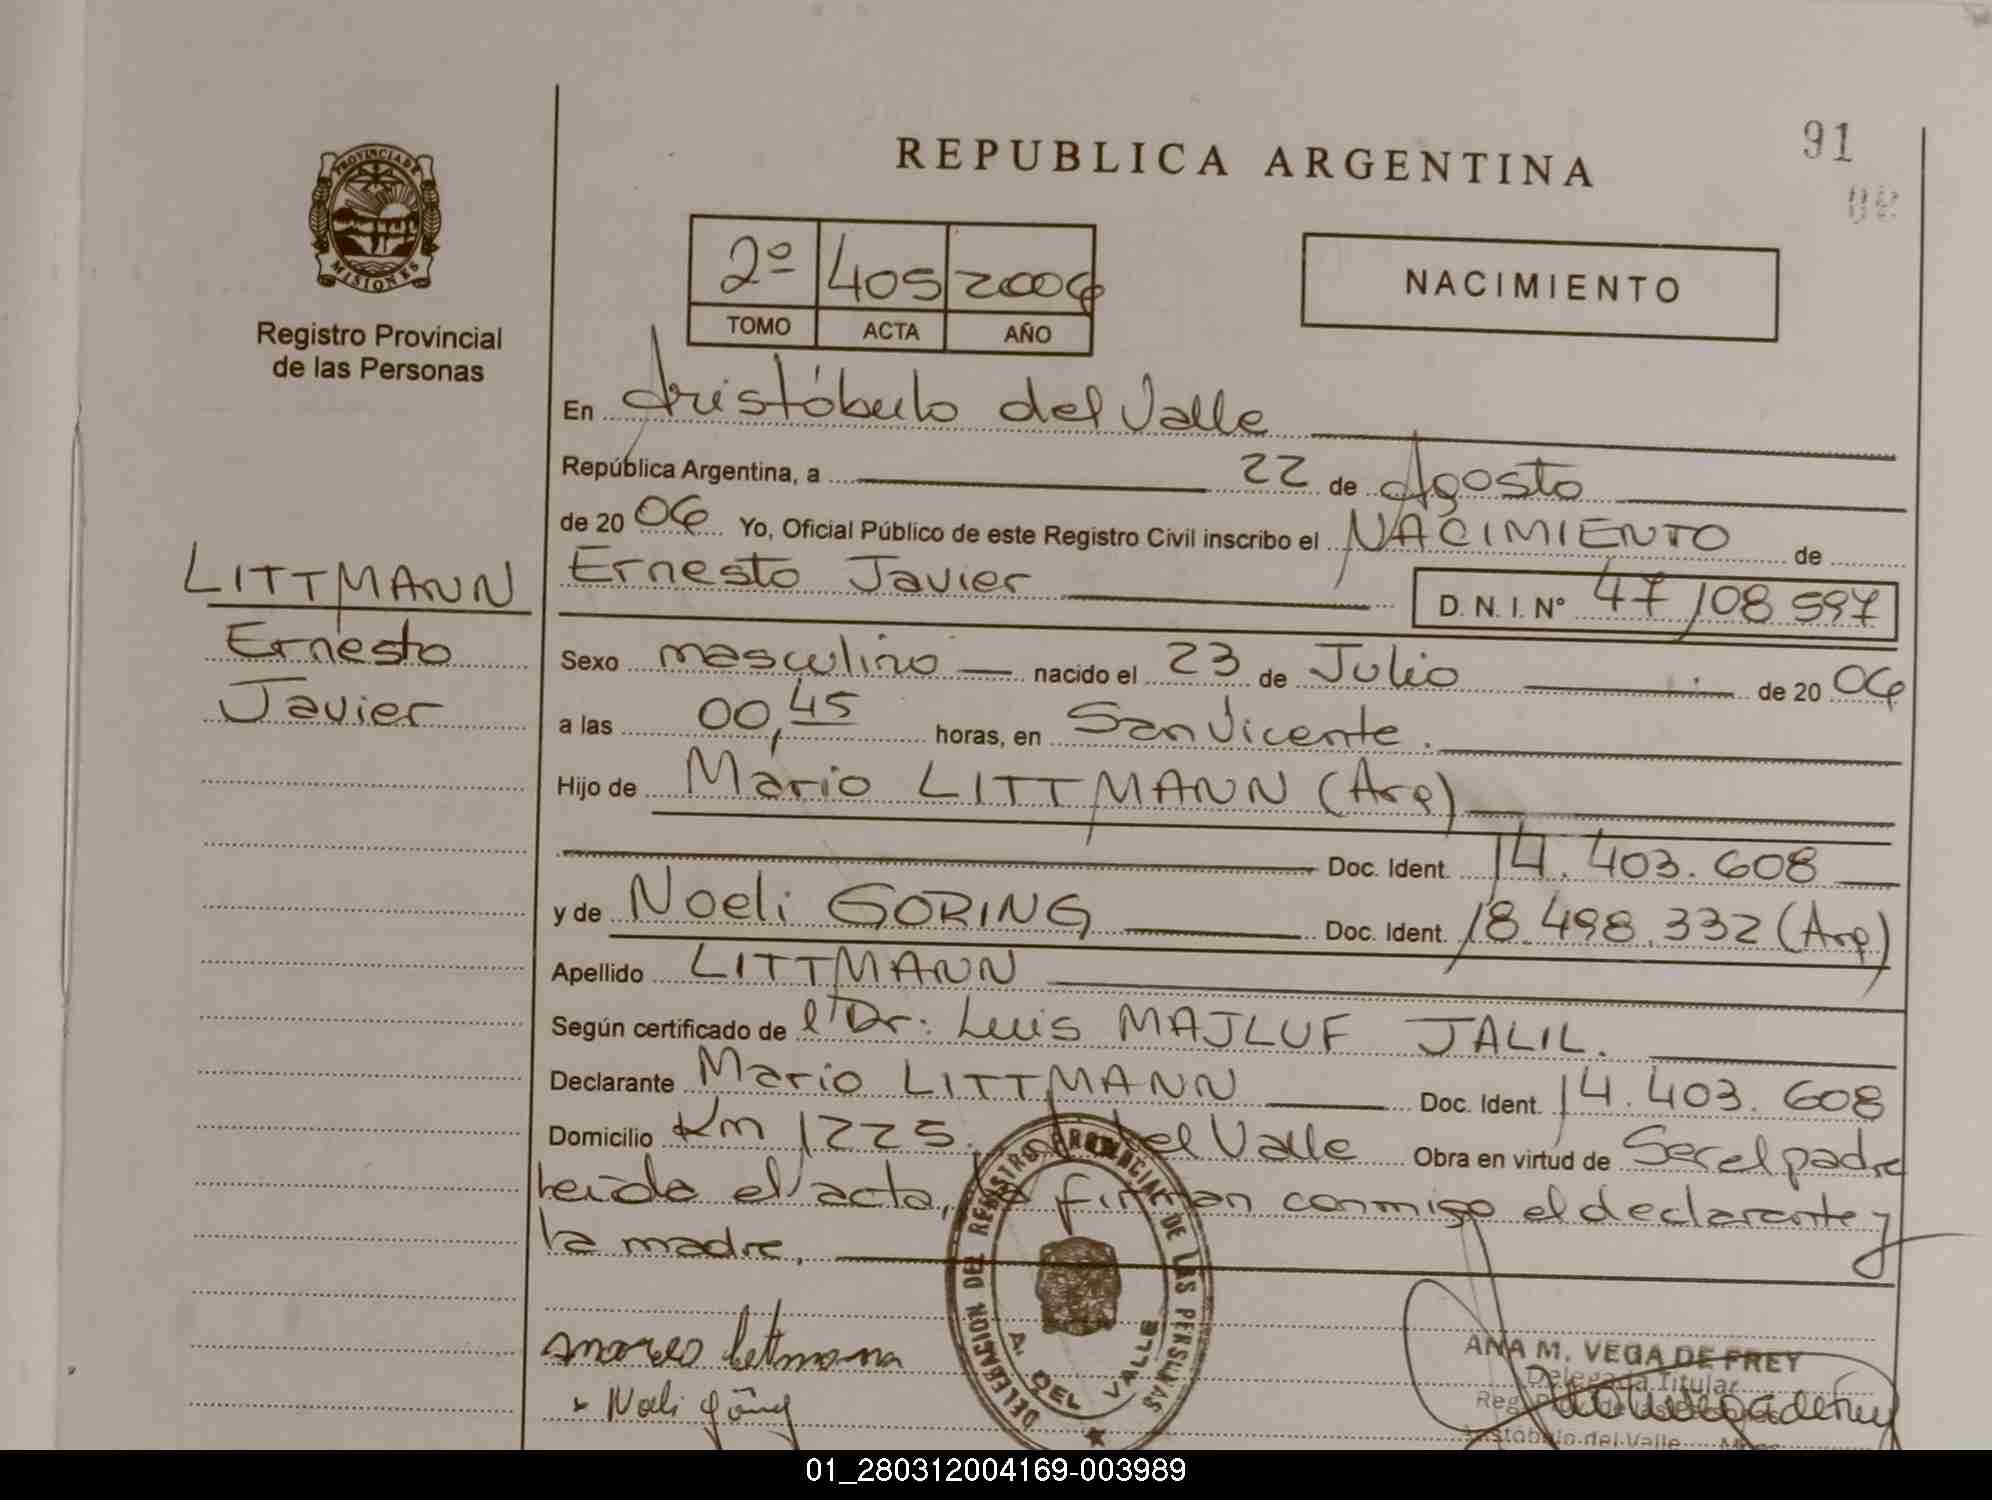 REPUBLICA ARGENTINA
91
PROVINCIA DE
MISIONES
Registro Provincial
de las Personas
2º 405 2006
TOMO ACTA AÑO
NACIMIENTO
En Aristóbulo del Valle
República Argentina, a 22 de Agosto
de 20 06 Yo, Oficial Público de este Registro Civil inscribo el NACIMIENTO de
Ernesto Javier D. N. I. Nº 47/108 597
LITTMANN
Ernesto
Javier
Sexo masculino nacido el 23 de Julio de 20 06
a las 00,45 horas, en San Vicente.
Hijo de Mario LITTMANN (Arg)
Doc. Ident. 14.403.608
y de Noeli GORING Doc. Ident. 18.498.332 (Arg)
Apellido LITTMANN
Según certificado de el Dr: Luis MAJLUF JALIL.
Declarante Mario LITTMANN Doc. Ident. 14.403.608
Domicilio Km 1225. A. del Valle Obra en virtud de Ser el padre
leída el acta, la firman conmigo el declarante y
la madre,
DELEGACION DEL REGISTRO PROVINCIAL DE LAS PERSONAS
A. DEL VALLE
Noeli göring
ANA M. VEGA DE FREY
Delegada Titular
Reg. Prov. de las Personas
Aristóbulo del Valle Mnes
01_280312004169-003989